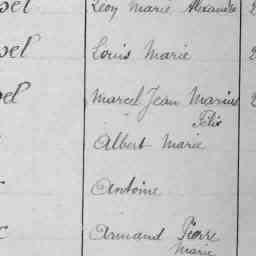 sel Léon Marie Alexandre 2
sel Louis Marie 2
sel Marcel Jean Marius 2
Félix
Albert Marie
Antoine
Armand Pierre
Marie